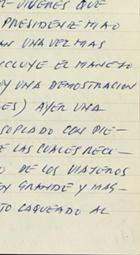 E VIVERES QUE
PRESIDENTE MIAO
AN UNA VEZ MAS
CLUYE EL MANEJO
Y UNA DEMOSTRACION
LES) AYER UNA
SOPLADO CON PIE-
E LAS CUALES RECU-
O DE LOS VIATEROS
EN GRANDE Y MAS-
TO LAQUEADO AL